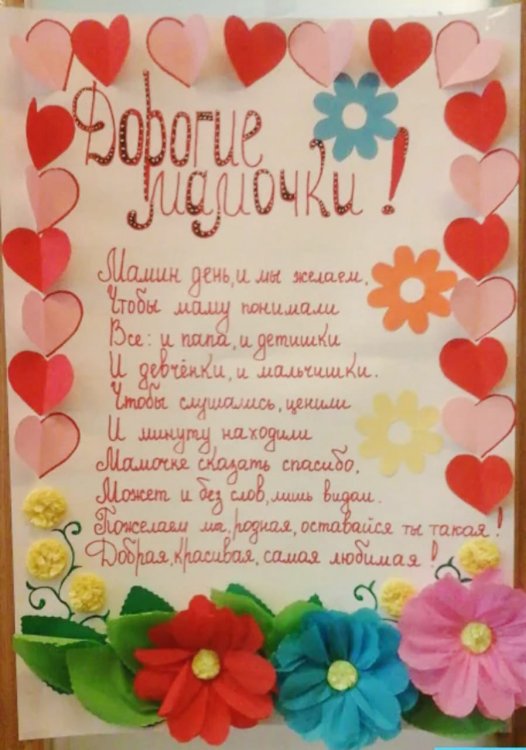 Дорогие
мамочки!
Мамин день, и мы желаем,
Чтобы маму понимали
Все: и папа, и детишки
И девчёнки, и мальчишки.
Чтобы слушались, ценили
И минуту находили
Мамочке сказать спасибо,
Может и без слов, лишь видом.
Пожелаем мы, родная, оставайся ты такая!
Добрая, красивая, самая любимая!